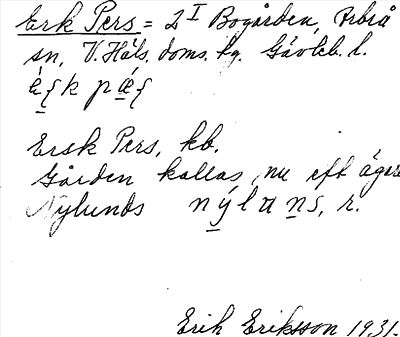 Erk Pers = 2^I Bogården, Arbrå
sn, V. Häls. doms. hg. Gävleb. l.
Ersk Pers, kb.
Gården kallas nu eft ägare
Nylunds
Erik Eriksson 1931.